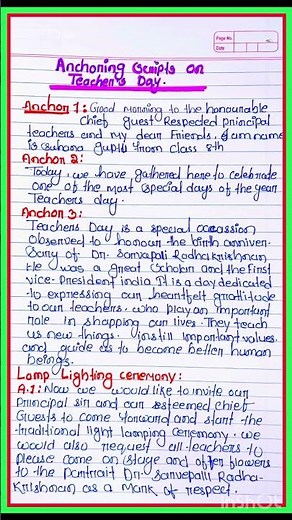 Page No.
Date
Anchoning Scripts on
Teacher's Day.
Anchon 1: Good Monning to the honounable
Chief guest Respeded principal
teachers and My dean Friends. I am name
is Suhana gupta from class 8th
Anchon 2:
Today, we have gathered here to celebrate
one of the most special days of the year
Teachens day.
Anchon 3:
Teachers Day is a special occassion
observed to honoun the binth anniven-
sany of Dn. Sarvapali Radhakrishnan
He was a great scholan and the First
vice-President india. It is a day dedicated
to expressing oun heantfelt gnatitude
to oun teachens. who play an important
role in shapping oun lives. They teach
us new things. instill important values.
and guide us to become betten human
beings.
Lamp Lighting cenemony:
A.1: Now we would like to invite oun
Principal sin and oun esteemed chief
Guests to come forward and stant the
tnaditional light lamping cenemony. we
would also request all teachers to
please come on stage and offen flowers
to the pontrait Dn. Sanvepalli Radha-
Knishnan as a Mank of respect.